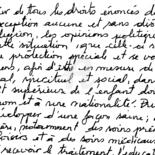 de tous les droits énoncés d
ception aucune et sans dis
ligion, les opinions politiqu
tte situation, que celle-ci s
e protection spéciale et se v
ens, afin d'être en mesure d
al, spirituel et social, dan
t supérieur de l'enfant do
om et à une nationalité. B
velopper d'une façon saine;
ère, notamment des soins pré
loisirs et à des soins médicaux
recevoir le traitement, l'éduc